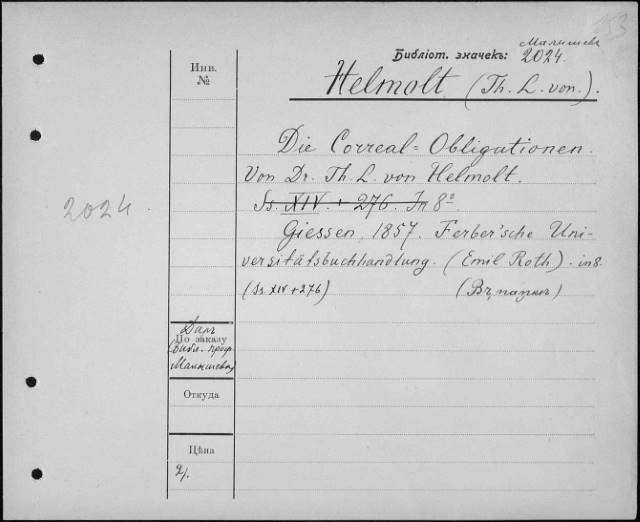 153
Малышева
Библіот. значекъ: 2024.
Инв. №
Helmolt (Th. L. von.).
Die Correal=Obligationen.
Von Dr. Th. L. von Helmolt.
Ss. XIV. + 276. In 8º
2024.
Giessen, 1857. Ferber'sche Uni-
versitätsbuchhandlung. (Emil Roth). in 8.
(Ss. XIV + 276) (Въ папкѣ)
Даръ
По заказу
(Библ. проф.
Малышева)
Откуда
Цѣна